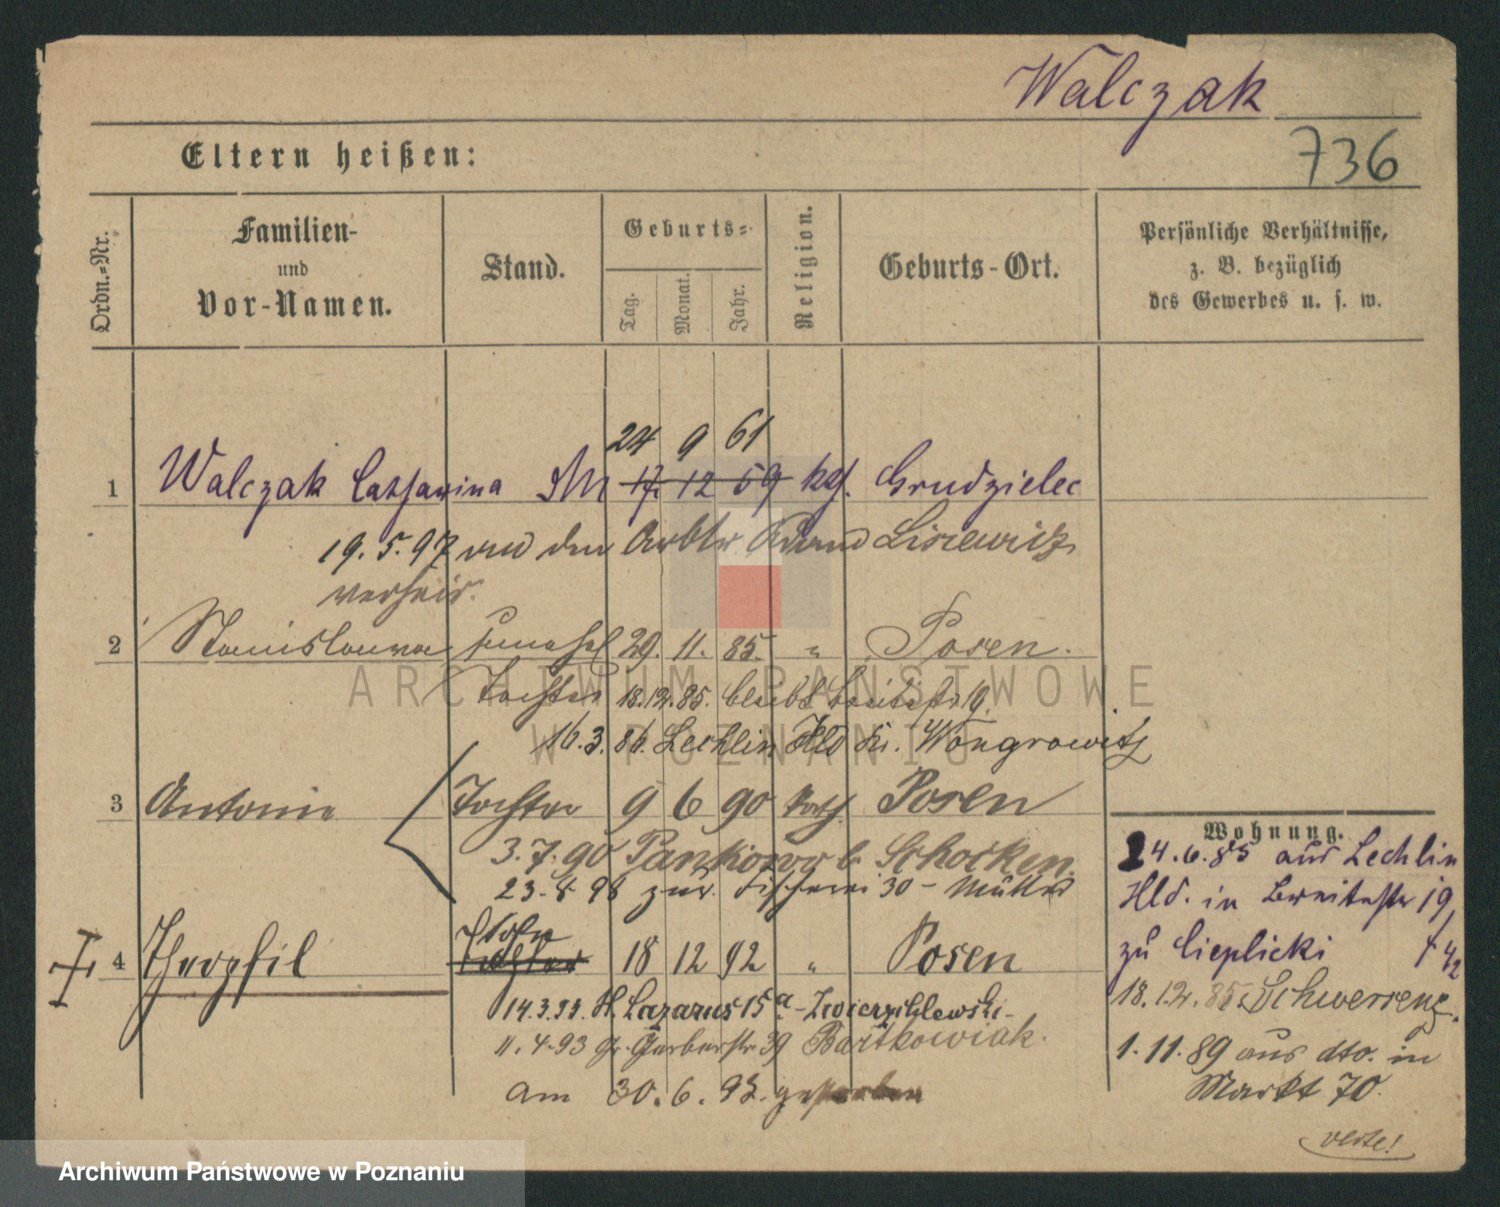 Walczak
736
Eltern heißen:
Ordn.=Nr.
Familien-
und
Vor-Namen.
Stand.
Geburts=
Tag.
Monat.
Jahr.
Religion.
Geburts-Ort.
Persönliche Verhältnisse,
z. B. bezüglich
des Gewerbes u. s. w.
24 9 61
1 Walczak Catharina 17. 12 59 kth. Grudzielec
19. 5. 97 an den Arbtr
verheir.
2 Stanislawa unehel 29. 11. 85. " Posen.
Tochter 18. 12. 85. bleibt Breitestr 19.
16. 3. 86. Lechlin Hld Kr. Wongrowitz
3 Antonie Tochter 9 6 90 kath. Posen
3. 7. 90 b. Schocken.
23. 8 98 zur. Fischerei 30 - Mutter
4 Theophil Sohn Tochter 18 12 92 " Posen
14. 3. 93. St. Lazarus 15a -
11. 4. 93 Gr. Gerberstr 39 Bartkowiak.
am 30. 6. 93. gestorben
Wohnung.
24. 6. 85 aus Lechlin
Hld. in Breitestr 19,
zu Cieplicki
18. 12. 85 Schwersenz.
1. 11. 89 aus dto. in
Markt 70.
verte!
ARCHIWUM PAŃSTWOWE
W POZNANIU
Archiwum Państwowe w Poznaniu